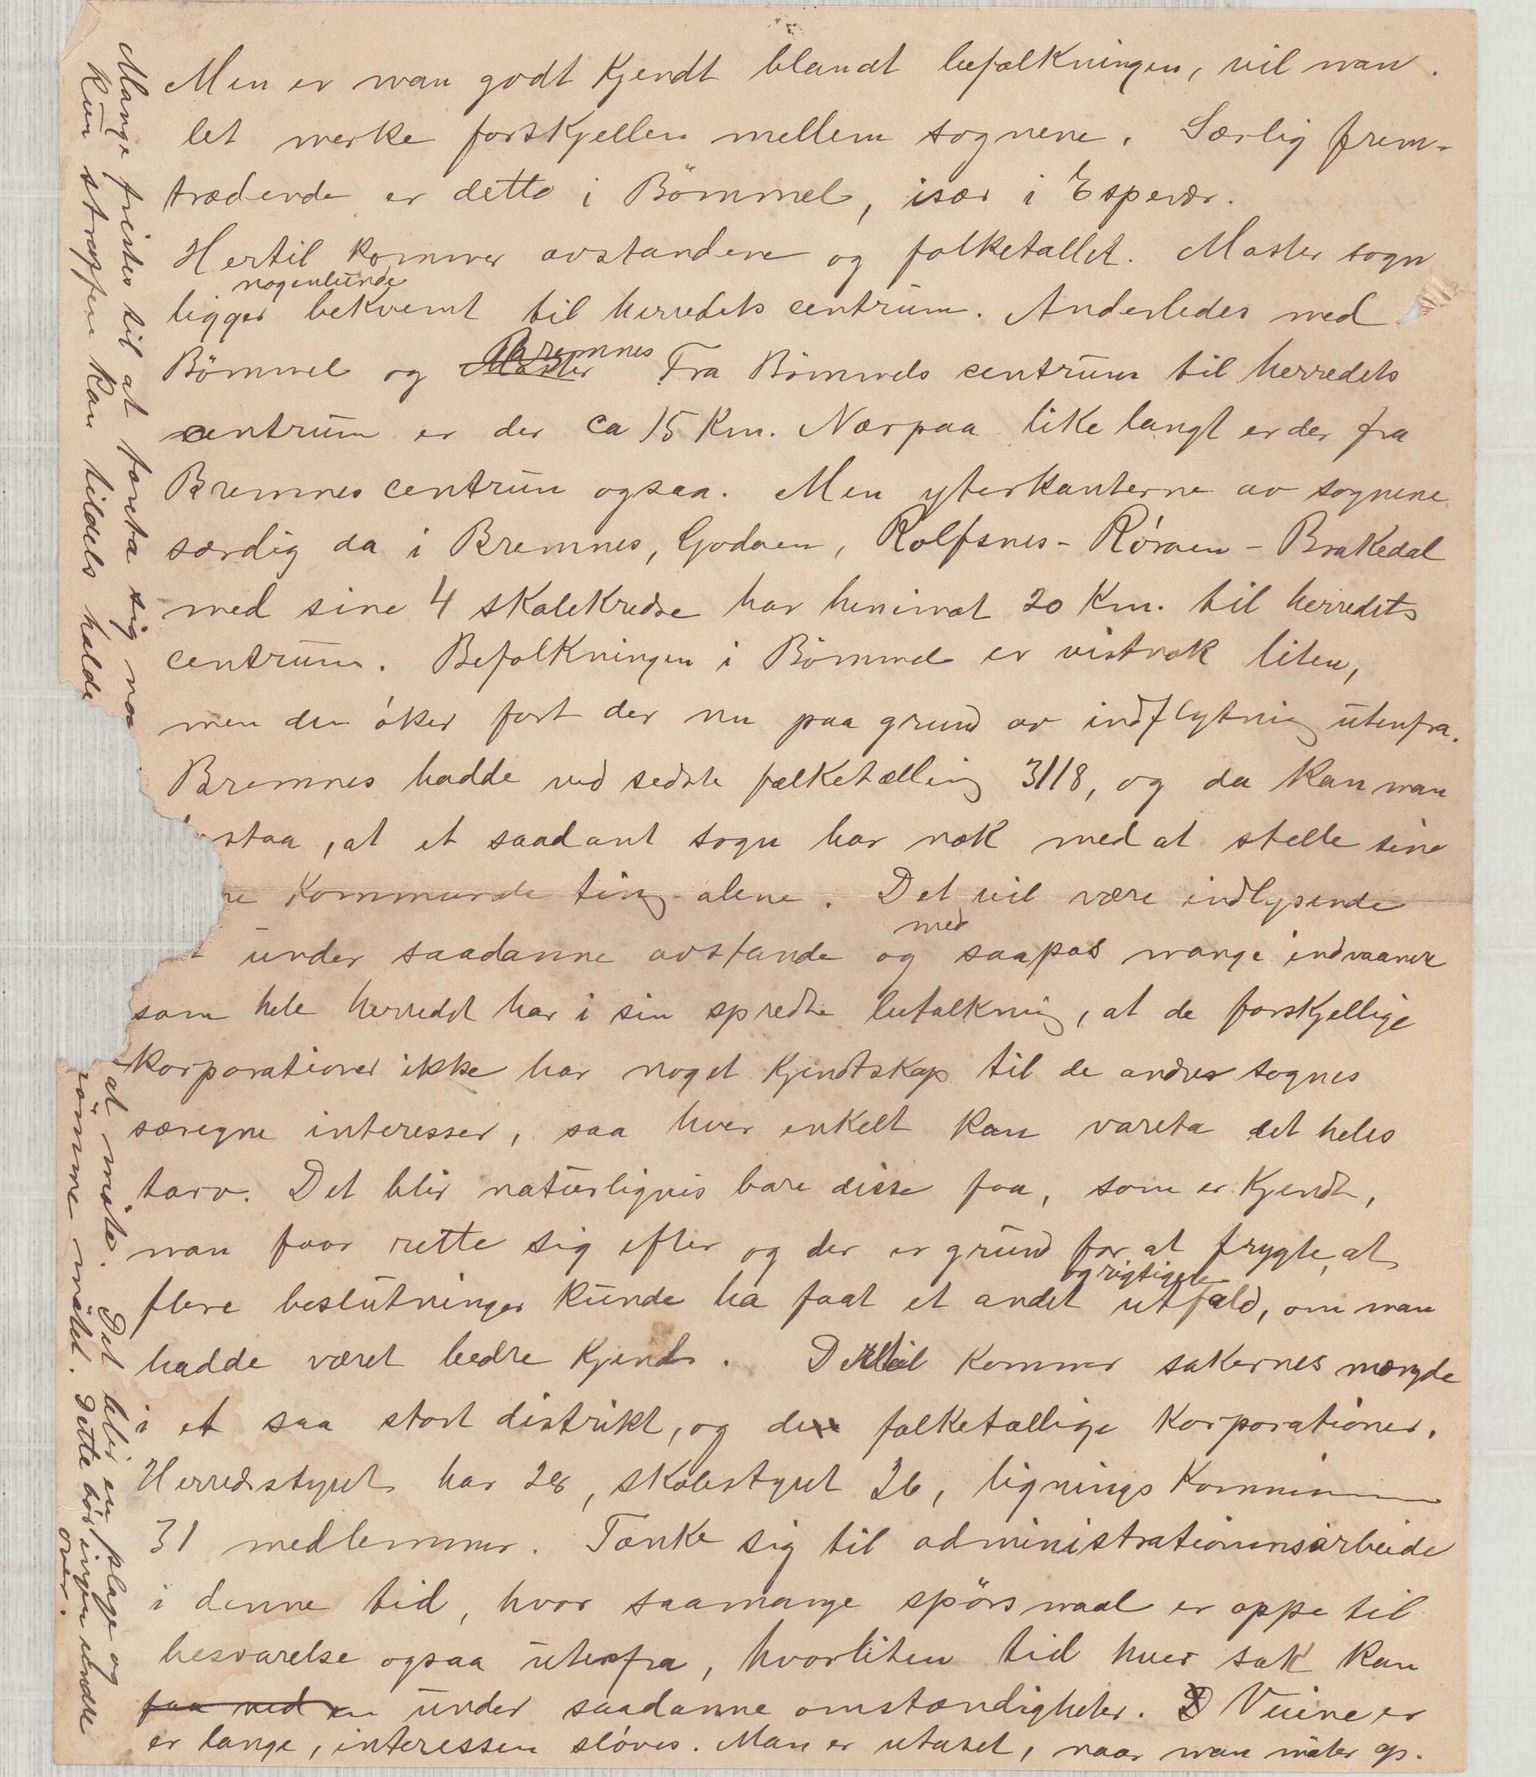 Men er man godt kjendt blandt befolkningen, vil man
let merke forskjellen mellem sognene. Særlig frem-
trædende er dette i Bömmel, især i Espevær.
Hertil kommer avstandene og folketallet. Moster sogn
nogenlunde
ligger bekvemt til herredets centrum. Anderledes med
Bremnes
Bömmel og Moster Fra Bömmels centrum til herredets
centrum er der ca 15 km. Nærpaa like langt er der fra
Bremnes centrum ogsaa. Men yterkanterne av sognene
særdig da i Bremnes, Godøen, Rolfsnes - Röraen - Brakedal
med sine 4 skolekredse har henimot 20 km. til herredets
centrum. Befolkningen i Bömmel er vistnok liten,
men den öker fort der nu paa grund av indflytning utenfra.
Bremnes hadde ved sedste folketælling 3118, og da kan man
staa, at et saadant sogn har nok med at stelle sine
re kommunale ting alene. Det vil være indlysende
med
t under saadanne avstande og saapas mange indvaanere
som hele herredet har i sin spredte befolkning, at de forskjellige
korporationer ikke har noget kjendtskap til de andres sognes
særegne interesser, saa hver enkelt kan vareta det heles
tarv. Det blir naturligvis bare disse faa, som er kjendt,
man faar rette sig efter og der er grund for at frygte, at
og rigtigere
flere beslutninger kunde ha faat et andet utfald, om man
hadde været bedre kjendt. Dertil kommer sakernes mængde
i et saa stort distrikt, og de folketallige korporationer.
Herredsstyret har 28, skolestyret 26, ligningskommissionen
31 medlemmer. Tænke sig til administrationsarbeide
i denne tid, hvor saamange spörsmaal er oppe til
besvarelse ogsaa utenfra, hvorliten tid hver sak kan
faa ved en under saadanne omstændigheter. Veiene er
er lange, interessen slöves. Man er utaset, naar man möter op.
Mange fristes til at foreta sig noe
Kun straffen kan tildels holde
at möte. Det blir en plage og
römme mötet. Dette bör ingen undre
over.